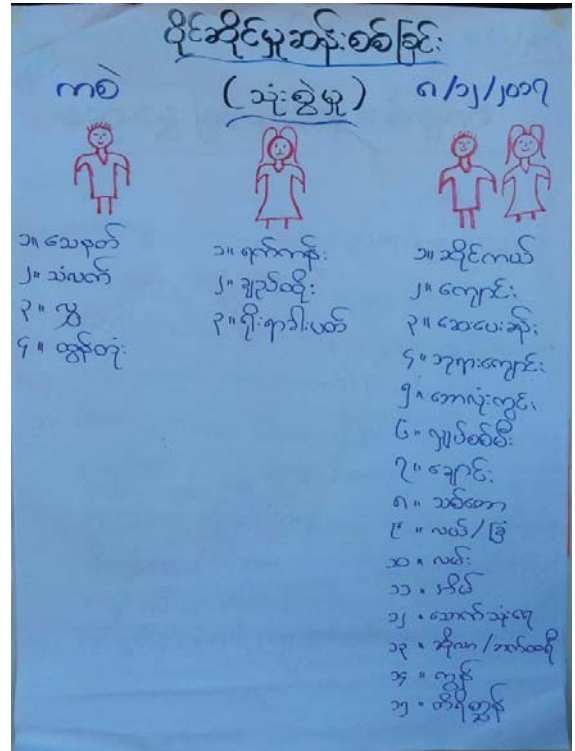 ပိုင်ဆိုင်မှုဆန်းစစ်ခြင်း
ကစဲ
(သုံးစွဲမှု)
၈/၁၂/၂၀၁၇
၁။ သေနတ်
၂။ သံလက်
၃။ လွှ
၄။ ထွန်တုံး
၁။ ရက်ကန်း
၂။ ချည်ထိုး
၃။ ရိုးရာခါးပတ်
၁။ ဆိုင်ကယ်
၂။ ကျောင်း
၃။ ဆေးပေးခန်း
၄။ ဘုရားကျောင်း
၅။ ဘောလုံးကွင်း
၆။ လျှပ်စစ်မီး
၇။ ချောင်း
၈။ သစ်တော
၉။ လယ်/ခြံ
၁၀။ လမ်း
၁၁။ အိမ်
၁၂။ သောက်သုံးရေ
၁၃။ ဆိုလာ/ဘက်ထရီ
၁၄။ ကျွန်
၁၅။ တိရိစ္ဆာန်